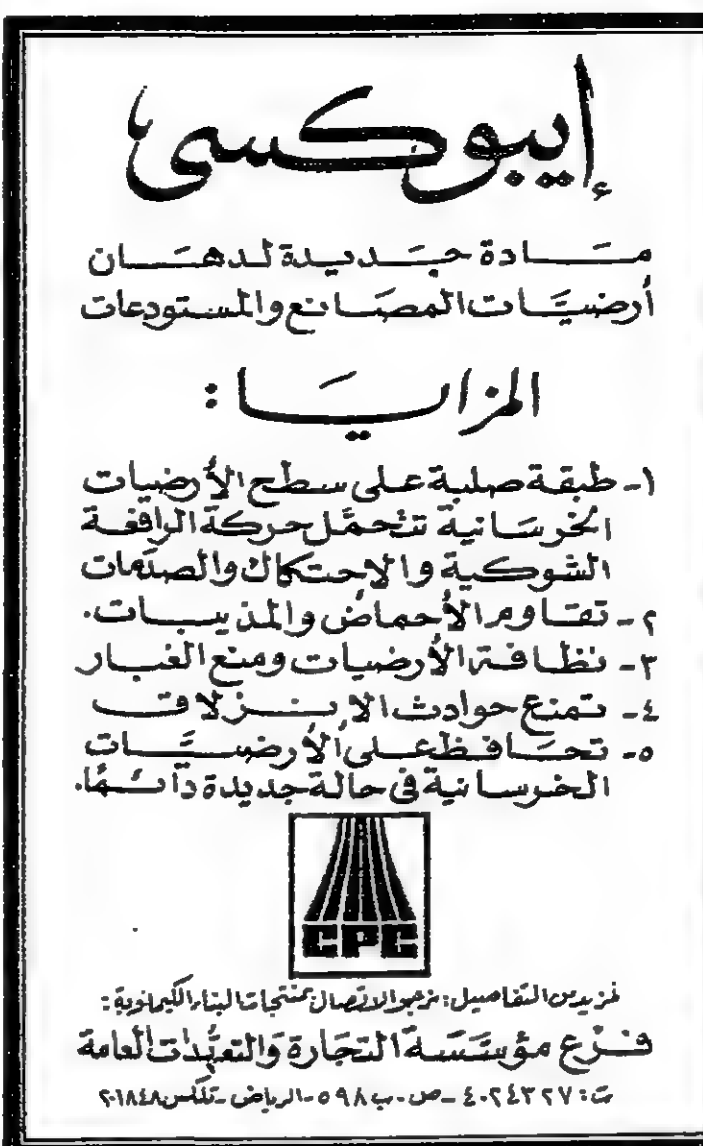 إيبوكسى
مادة جديدة لدهان
أرضيات المصانع والمستودعات
المزايا :
١- طبقة صلبة على سطح الأرضيات
الخرسانية تتحمل حركة الرافعة
الشوكية والاحتكاك والصدمات
٢- تقاوم الأحماض والمذيبات.
٣- نظافة الأرضيات ومنع الغبار
٤- تمنع حوادث الانزلاق
٥- تحافظ على الأرضيات
الخرسانية في حالة جديدة دائمًا.
CPC
لمزيد من التفاصيل: نرجو الاتصال بمنتجات البناء الكيماوية:
فرع مؤسسة التجارة والتعهدات العامة
ت: ٤٠٢٤٣٢٧ - ص.ب ٥٩٨ - الرياض - تلكس ٢٠١٨٤٨